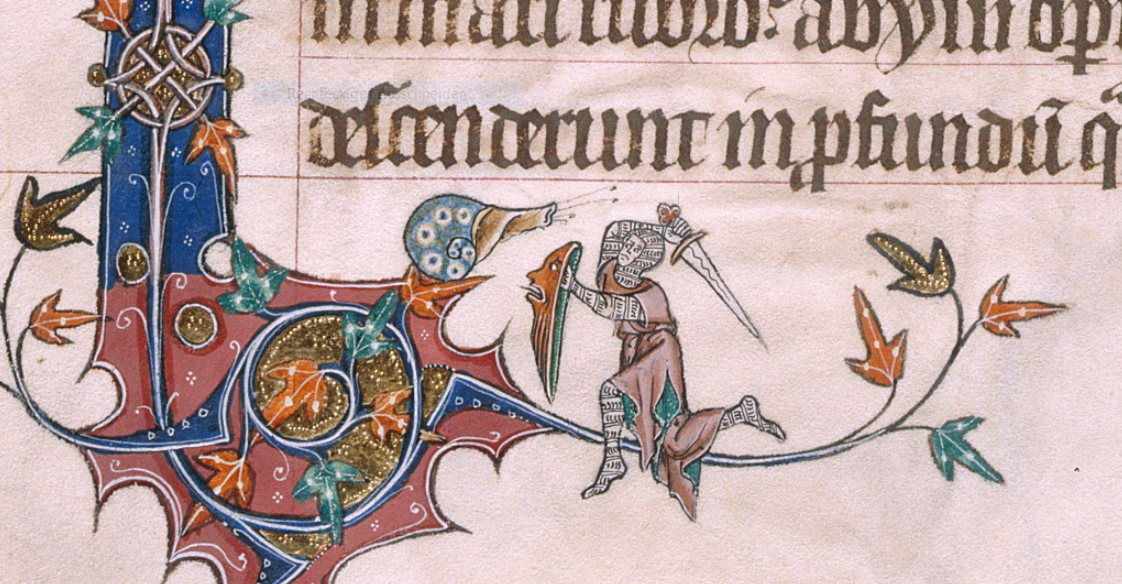 in mari rubro: abyssi op
Rechteckiges Ausschneiden
descenderunt in ꝓfundū q